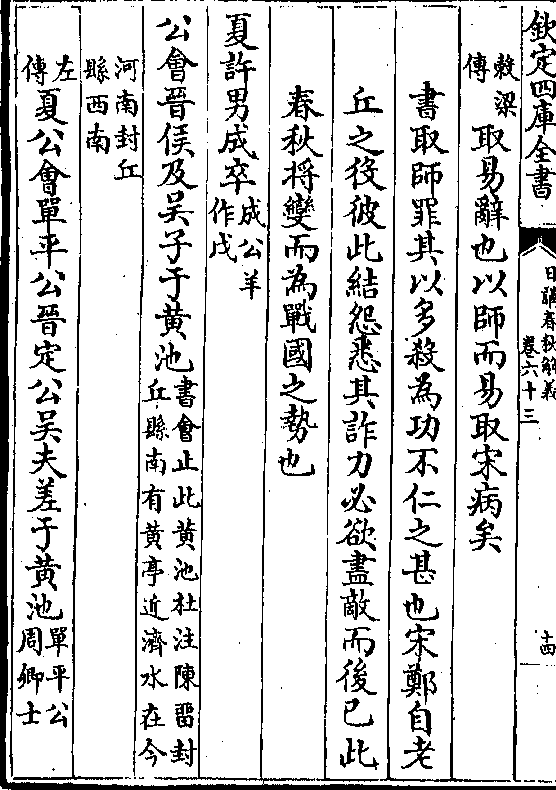 欽定四庫全書
日講春秋解義
卷六十三
十四
穀梁
傳
取易辭也以師而易取宋病矣
書取師罪其以多殺為功不仁之甚也宋鄭自老
丘之役彼此結怨悉其詐力必欲盡敵而後已此
春秋將變而為戰國之勢也
夏許男成卒
成公羊
作戊
公會晉侯及吳子于黄池
書會止此黄池杜注陳畱封
丘縣南有黄亭近濟水在今
河南封丘
縣西南
左
傳
夏公會單平公晉定公吳夫差于黄池
單平公
周卿士